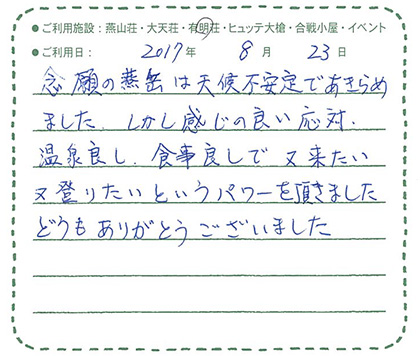 ●ご利用施設：燕山荘・大天荘・有明荘・ヒュッテ大槍・合戦小屋・イベント
●ご利用日： 2017年 8月 23日
念願の燕岳は天候不安定であきらめ
ました．しかし感じの良い応対．
温泉良し．食事良しで又来たい
又登りたいというパワーを頂きました
どうもありがとうございました